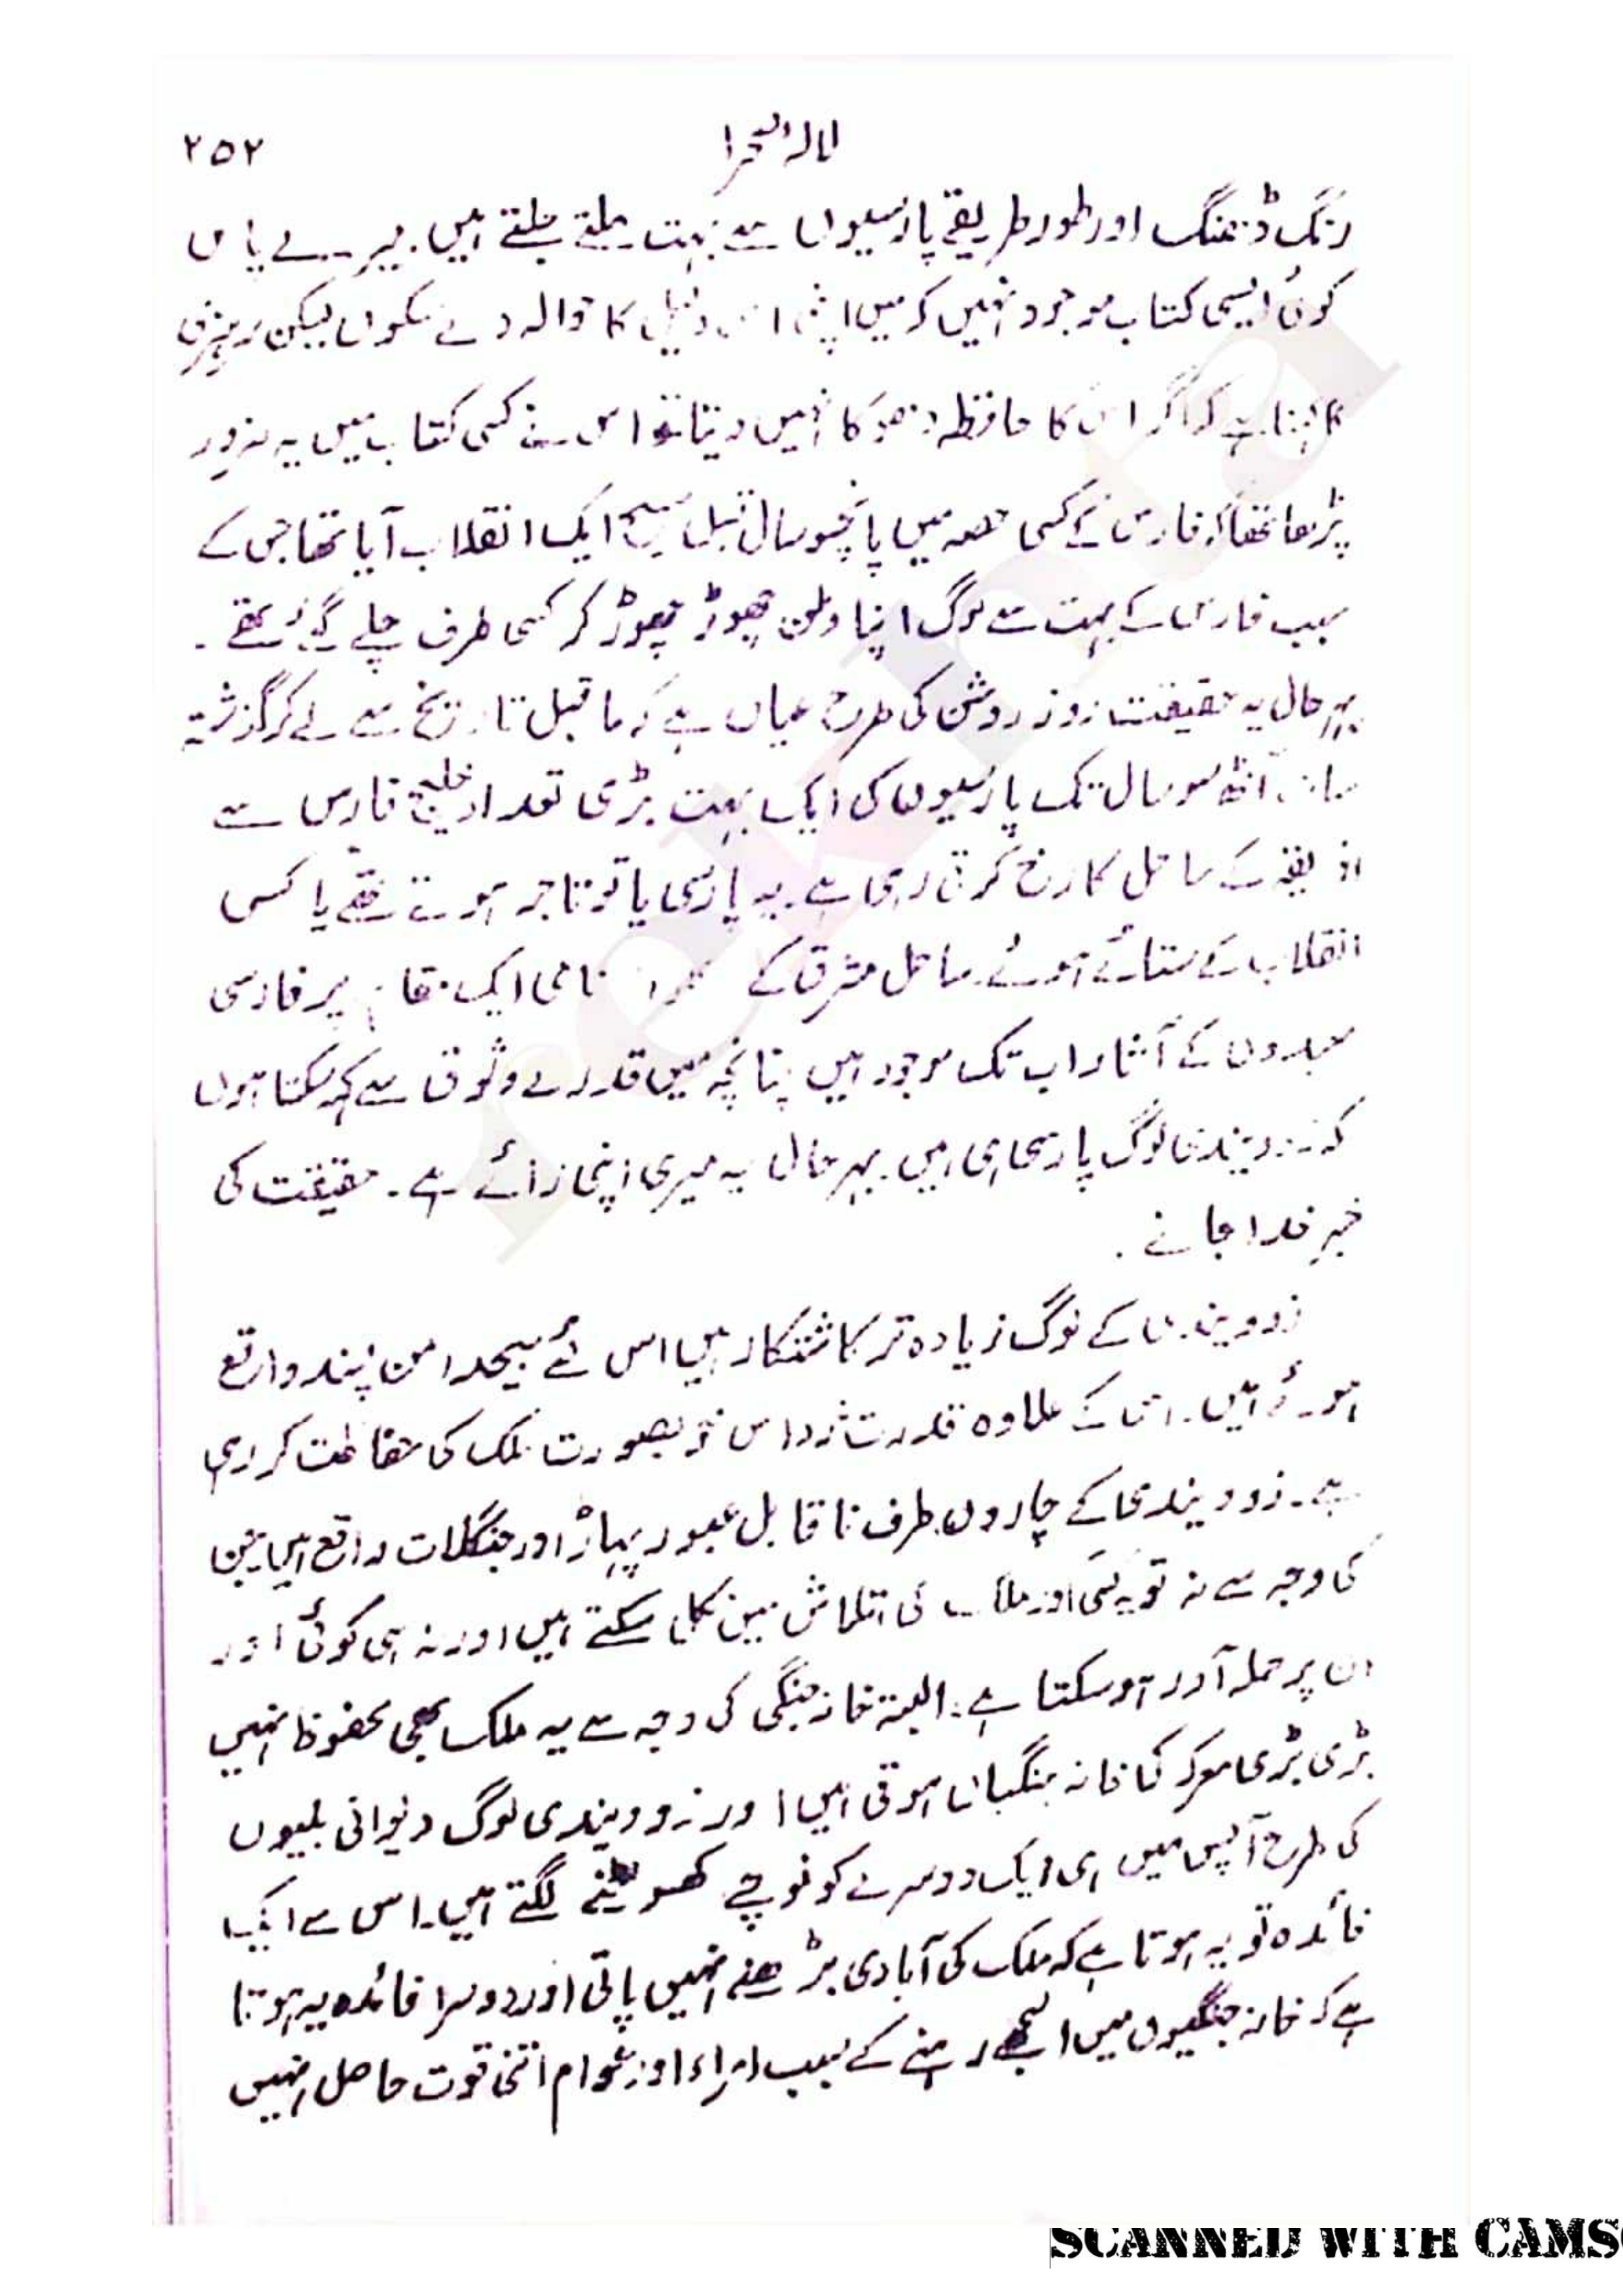 لالۂ صحرا
۲۵۲
رنگ ڈھنگ اور طور طریقے پارسیوں سے بہت ملتے جلتے ہیں. میرے پاس
کوئی ایسی کتاب موجود نہیں کہ میں اپنی اس دلیل کا حوالہ دے سکوں لیکن سر ہنری
کا کہنا ہے کہ اگر اس کا حافظہ دھوکا نہیں دیتا تو اس نے کسی کتاب میں یہ ضرور
پڑھا تھا کہ فارس کے کسی حصہ میں پانچسو سال قبل مسیح ایک انقلاب آیا تھا جس کے
سبب فارس کے بہت سے لوگ اپنا وطن چھوڑ چھوڑ کر کسی طرف چلے گئے تھے۔
بہرحال یہ حقیقت روز روشن کی طرح عیاں ہے کہ ماقبل تاریخ سے لے کر گزشتہ
سات آٹھ سو سال تک پارسیوں کی ایک بہت بڑی تعداد خلیج فارس سے
افریقہ کے ساحل کا رخ کرتی رہی ہے. یہ پارسی یا تو تاجر ہوتے تھے یا کسی
انقلاب کے ستائے ہوئے. ساحل مشرق کے نامی ایک مقام پر فارسی
معبدوں کے آثار اب تک موجود ہیں چنانچہ میں قدرے وثوق سے کہہ سکتا ہوں
کہ زوویندی لوگ پارسی ہی ہیں. بہرحال یہ میری اپنی رائے ہے۔ حقیقت کی
خبر خدا جانے.
زوویندی کے لوگ زیادہ تر کاشتکار ہیں اس لئے بیحد امن پسند واقع
ہوئے ہیں۔ اس کے علاوہ قدرت خود اس خوبصورت ملک کی حفاظت کر رہی
ہے۔ زوویندی کے چاروں طرف ناقابل عبور پہاڑ اور جنگلات واقع ہیں جن
کی وجہ سے نہ تو یہ کسی اور ملک کی تلاش میں نکل سکتے ہیں اور نہ ہی کوئی اور
ان پر حملہ آور ہو سکتا ہے. البتہ خانہ جنگی کی وجہ سے یہ ملک بھی محفوظ نہیں
بڑی بڑی معرکہ کی خانہ جنگیاں ہوتی ہیں اور زوویندی لوگ دیوانی بلیوں
کی طرح آپس میں ہی ایک دوسرے کو نوچنے کھسوٹنے لگتے ہیں۔ اس سے ایک
فائدہ تو یہ ہوتا ہے کہ ملک کی آبادی بڑھنے نہیں پاتی اور دوسرا فائدہ یہ ہوتا
ہے کہ خانہ جنگیوں میں الجھے رہنے کے سبب امراء اور عوام اتنی قوت حاصل نہیں
rekhta
SCANNED WITH CAMS